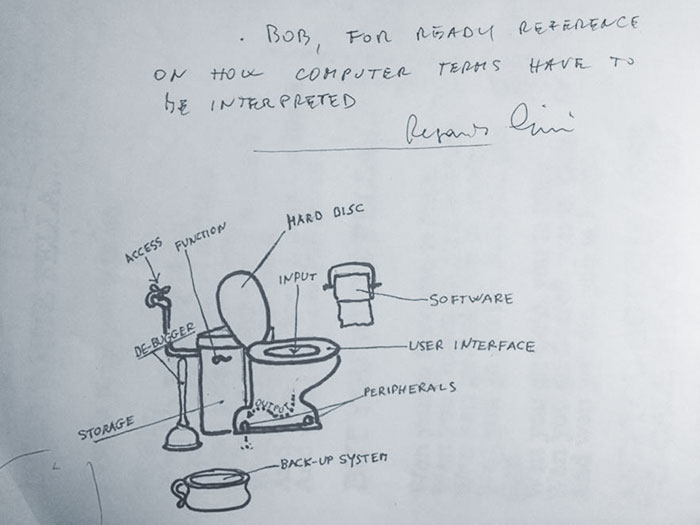 . BOB, FOR READY REFERENCE
ON HOW COMPUTER TERMS HAVE TO
BE INTERPRETED
Regards
HARD DISC
FUNCTION
ACCESS
INPUT
SOFTWARE
DE-BUGGER
USER INTERFACE
PERIPHERALS
OUTPUT
STORAGE
BACK-UP SYSTEM